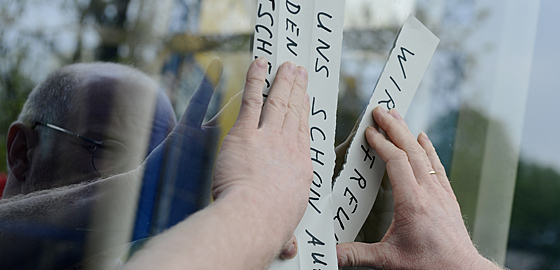 WIR FREU
UNS SCHON AU
DEN
TSCHECH